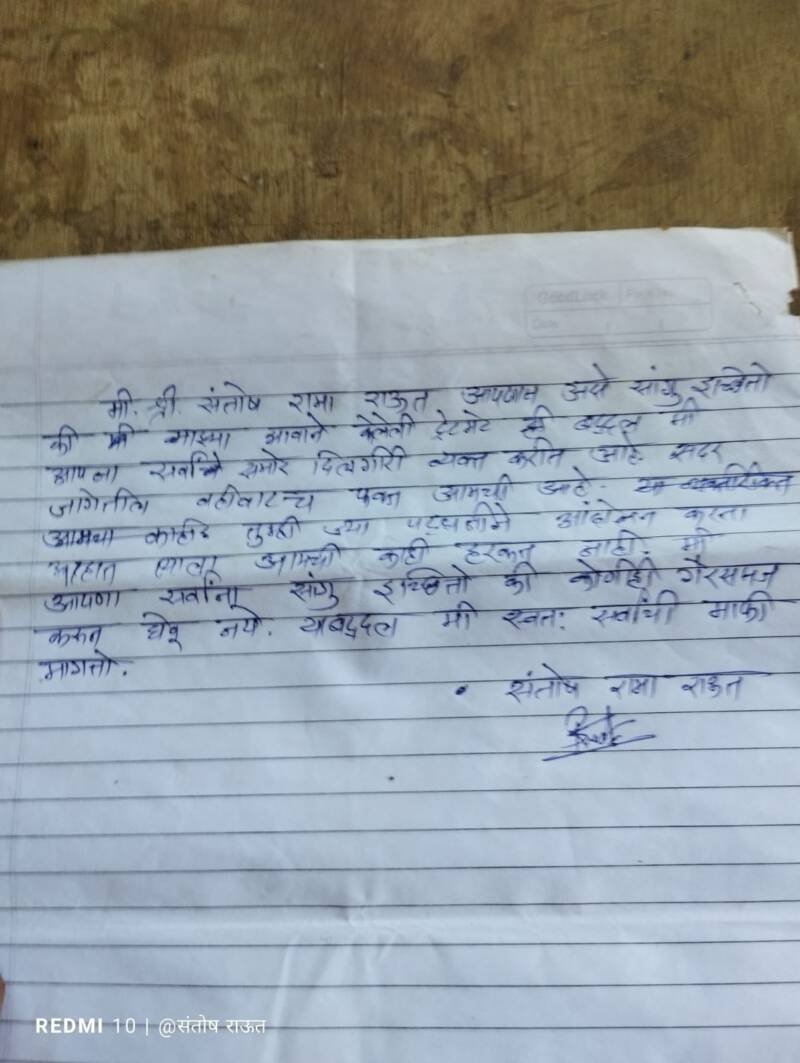 GoodLuck
Date
मी. श्री. संतोष रामा राऊत आपणास असे सांगु इच्छितो
की माझ्या भावाने केलेली ट्रेटमेट ही बद्दल मी
आपना सर्वांचे समोर दिलगीरी व्यक्त करीत आहे सदर
जागेतील वहीवाटच फक्त आमची आहे.
आमचा काही तुम्ही ज्या पद्धतीने आंदोलन करता
आहात त्याला आमची काही हरकत नाही. मी
आपणा सर्वांना सांगु इच्छितो की कोणीही गैरसमज
करून घेवू नये. याबद्दल मी स्वतः सर्वांची माफी
मागतो.
संतोष रामा राऊत
REDMI 10 | @संतोष राऊत